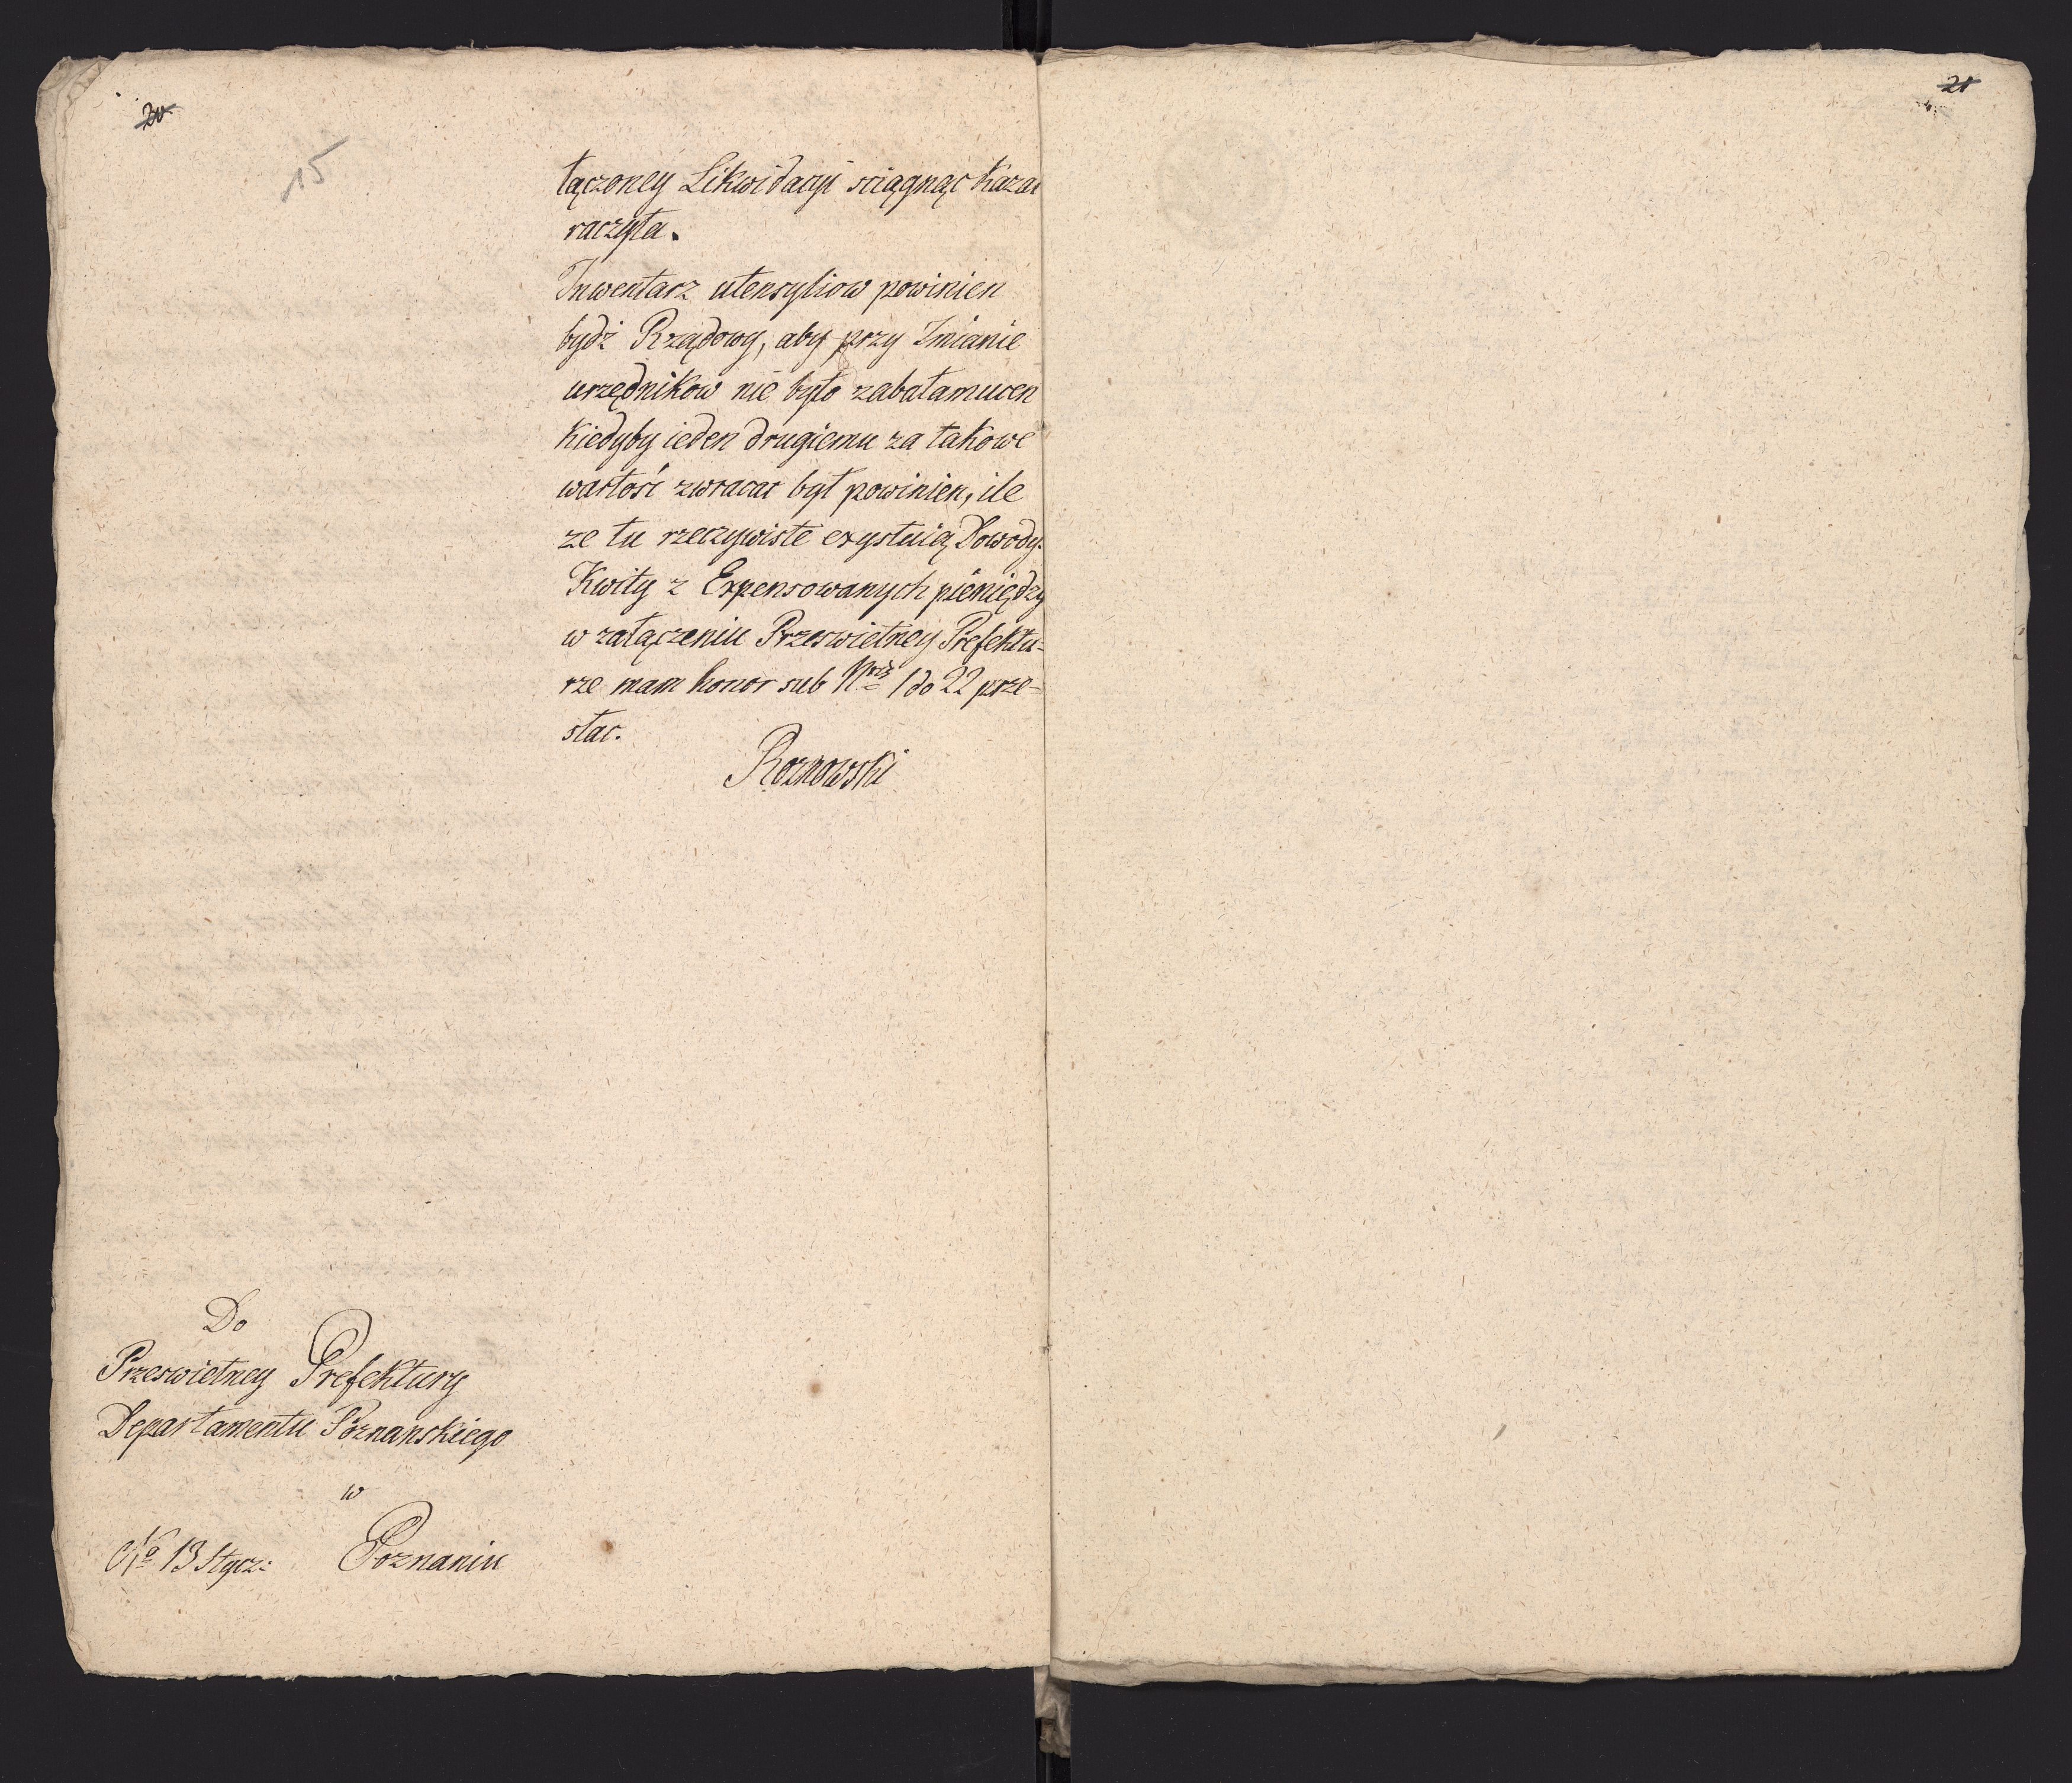 20
15
łączoney Likwidacyi sciągnąc Kazac
raczyła.
Inwentarz utensyliow powinien
bydź Rządowy, aby przy Zmianie
urzędnikow nie było zabałamucen
Kiedyby ieden drugiemu za takowe
wartość zwracac był powinien, ile
ze tu rzeczywiste exystuią Dowody.
Kwity z Expensowanych pieniędzy
w załączeniu Przeswietney Prefektu=
rze mam honor sub Nris 1 do 22 prze=
słac.
Roznowski
Do
Przeswietney Prefektury
Departamentu Poznanskiego
w
13 Stycz: Poznaniu
21